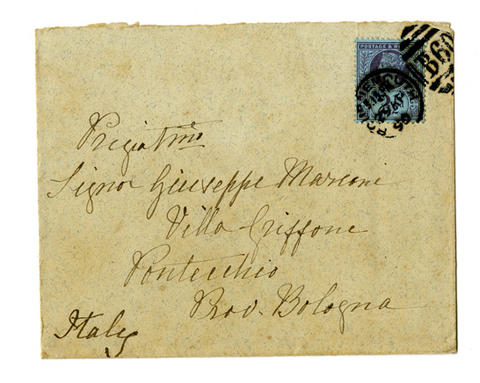 POSTAGE & R
B60
Pregiatmo
Signor Giuseppe Marconi
Villa Griffone
Pontecchio
Prov. Bologna
Italy